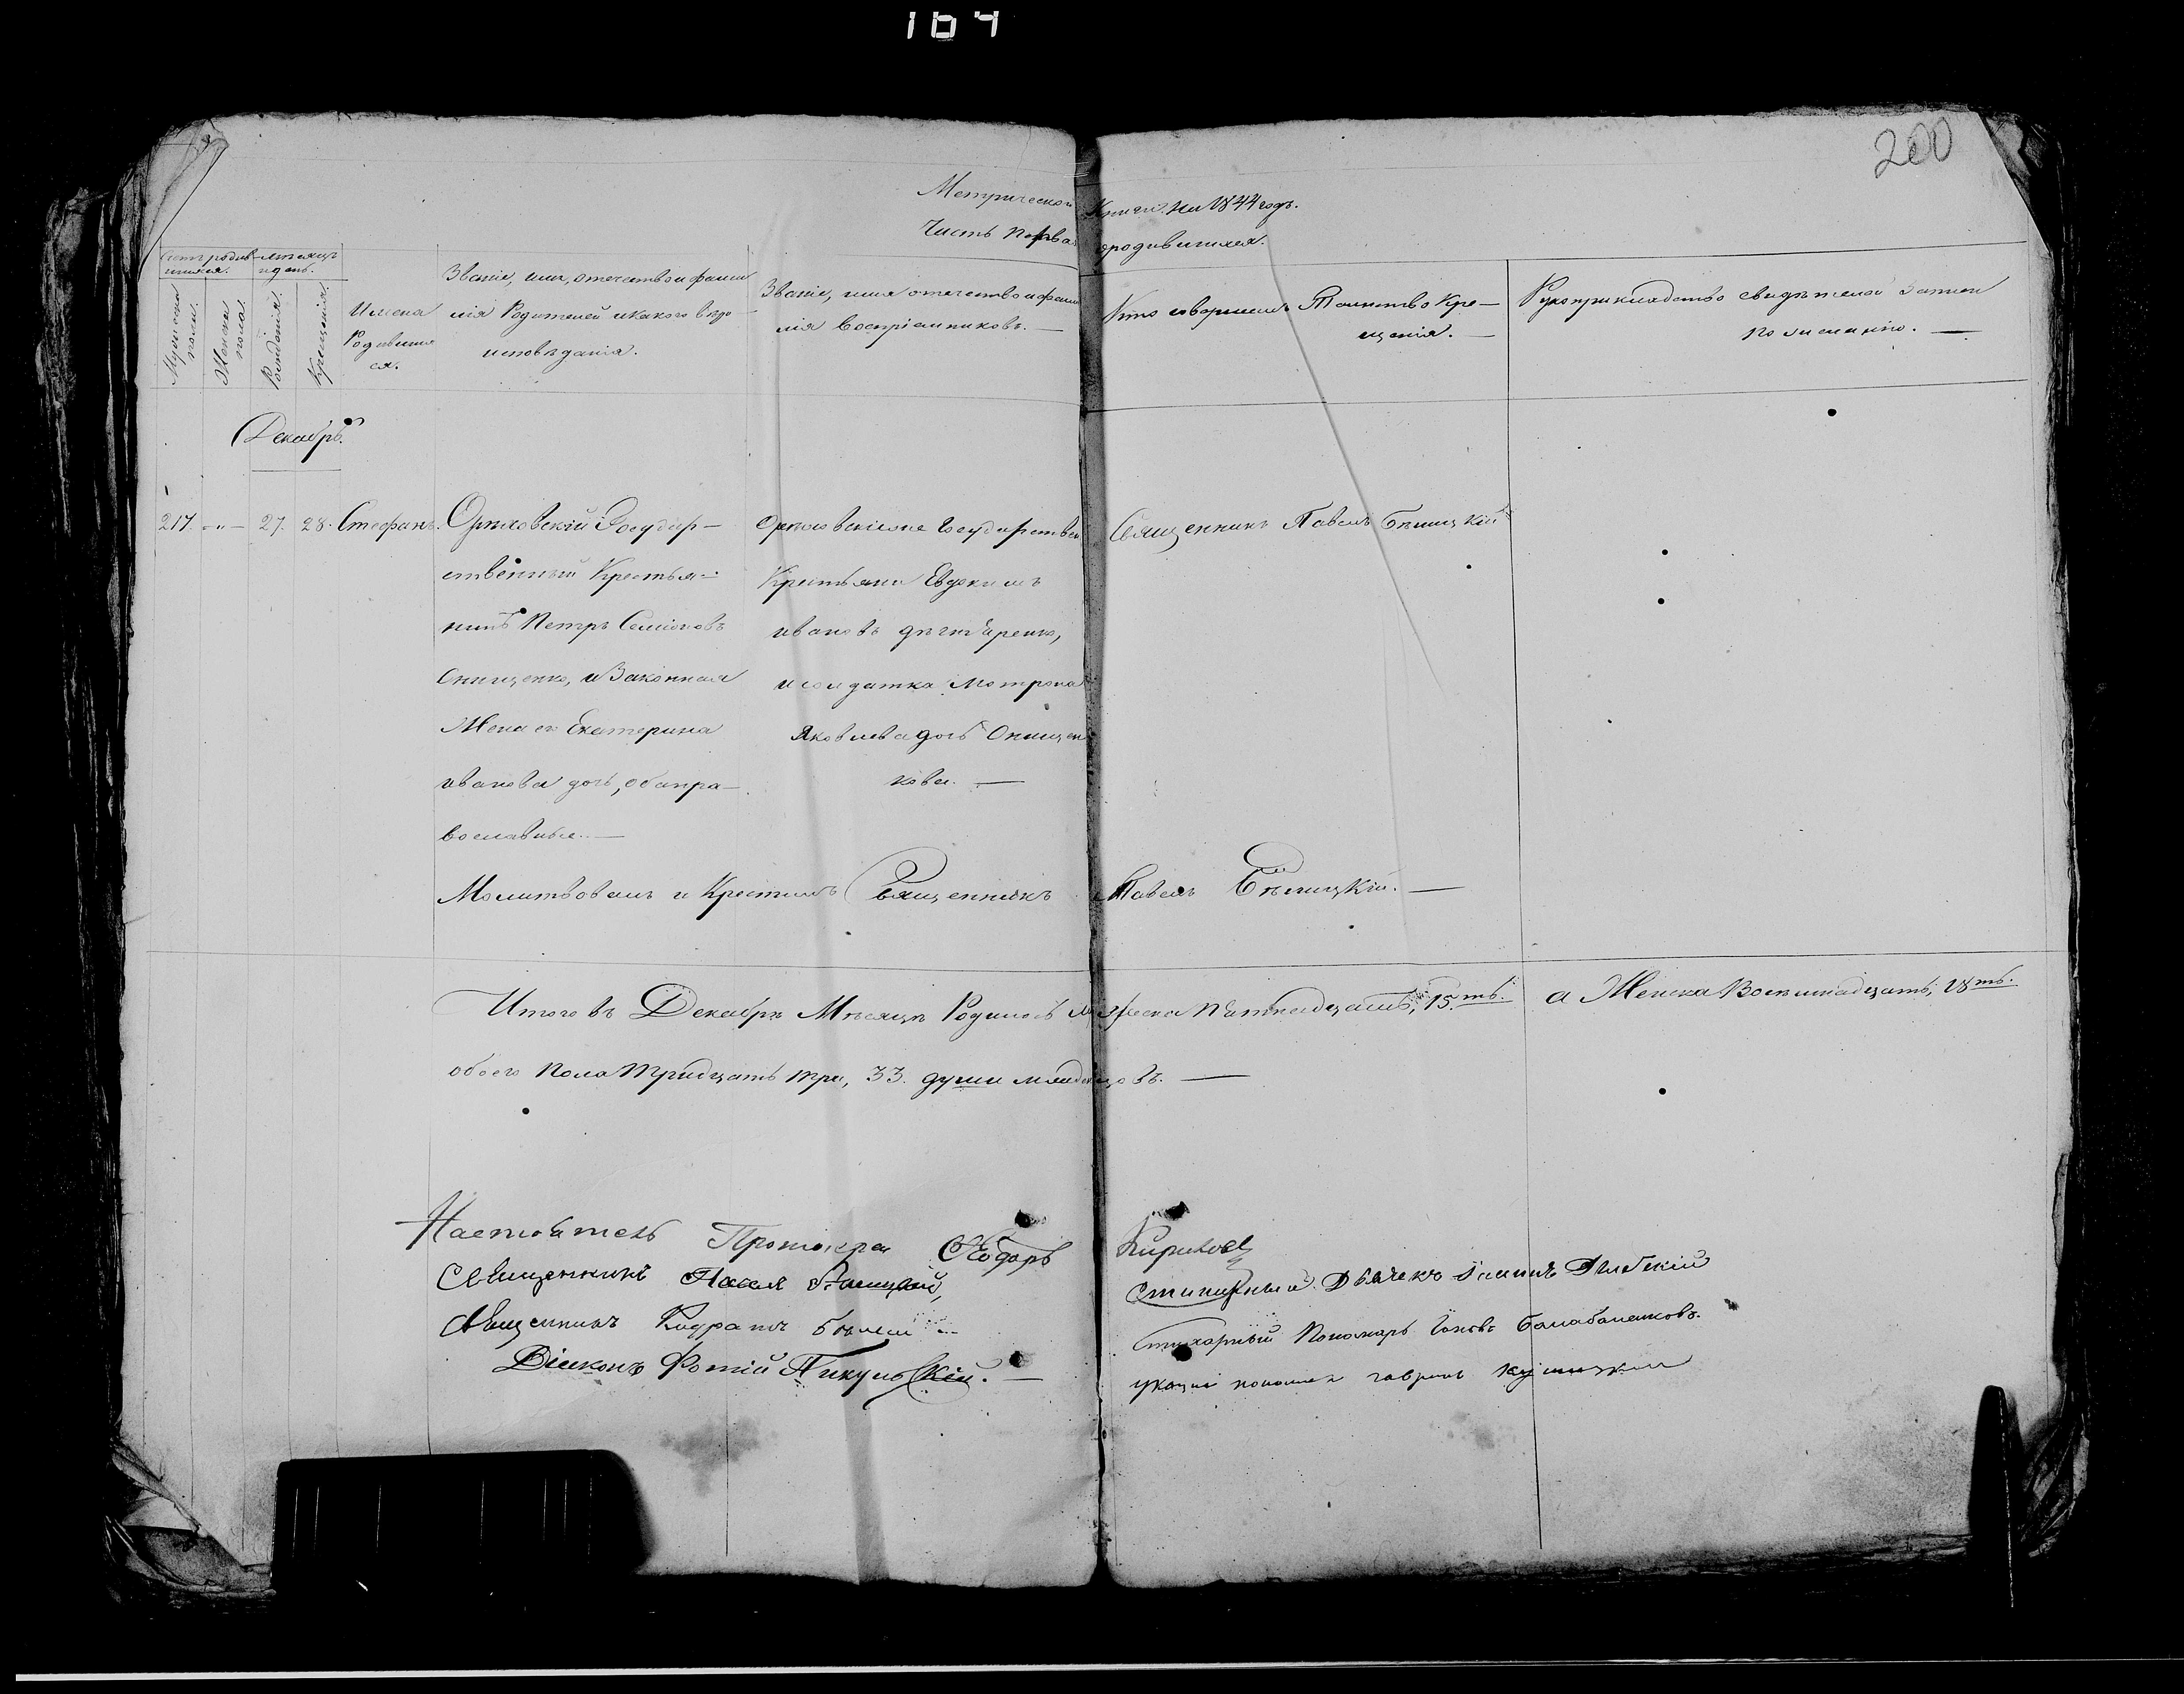 164
200
Метрической Книги на 1844 годъ.
Часть Первая о родившихся.
Счетъ родившихся.
Мѣсяцъ и день.
Мужеска полу.
Женска пола.
Рожденія.
Крещенія.
Имена Родившихся.
Званіе, имя, отечество и фамилія Родителей и какого вѣроисповѣданія.
Званіе, имя отечество и фамилія Воспріемниковъ. —
Кто совершалъ Таинство Крещенія. —
Рукоприкладство свидѣтелей записи по желанію. —
Декабрь.
217. — „ — 27. 28. Стефанъ.
Орѣховскій Государ-
ственный Крестья-
нинъ Петръ Семіоновъ
Онищенко, и Законная
Жена его Екатерина
иванова дочь, оба пра-
вославные. —
Орѣховскіе Государствен
Крестьяне Евдокимъ
ивановъ
и солдатка Мотрона
Яковлева дочь Онищен
кова. —
Священникъ Павелъ Бѣлицкій
Молитвовалъ и Крестилъ Священникъ Павелъ Бѣлицкій. —
Итого въ Декабрѣ Мѣсяцѣ Родилось Мужеска Пятнадцать, 15.ть. а Женска Восемнадцать, 18ть.
обоего Пола Тридцать три, 33. души младенцовъ. —
Настоятель Протоіерей Ѳеодоръ Кириловъ
Священникъ Павелъ Бѣлицкій,
Священникъ Кодратъ
Діаконъ Фотій Пикульскій. —
Стихарный Дьячекъ
Стихарный Пономарь Іаковъ Балабаненковъ.
Указный пономар гавриилъ